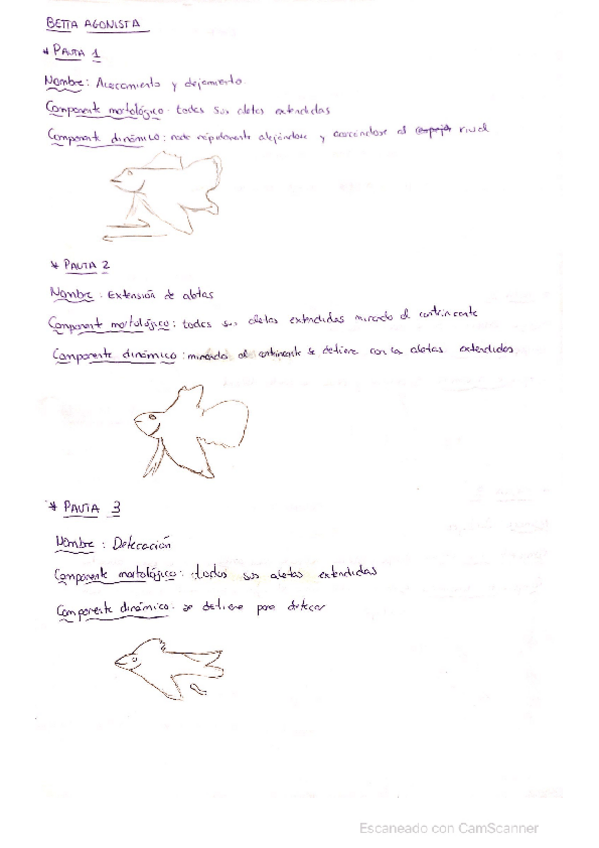 BETTA AGONISTA
* PAUTA 1
Nombre: Acercamiento y alejamiento.
Componente morfológico: todas sus aletas extendidas
Componente dinámico: nada rápidamente alejándose y acercándose al espejo rival
* PAUTA 2
Nombre: Extensión de aletas
Componente morfológico: todas sus aletas extendidas mirando al contrincante
Componente dinámico: mirando al contrincante se detiene con las aletas extendidas
* PAUTA 3
Nombre: Defecación
Componente morfológico: todas sus aletas extendidas
Componente dinámico: se detiene para defecar
Escaneado con CamScanner